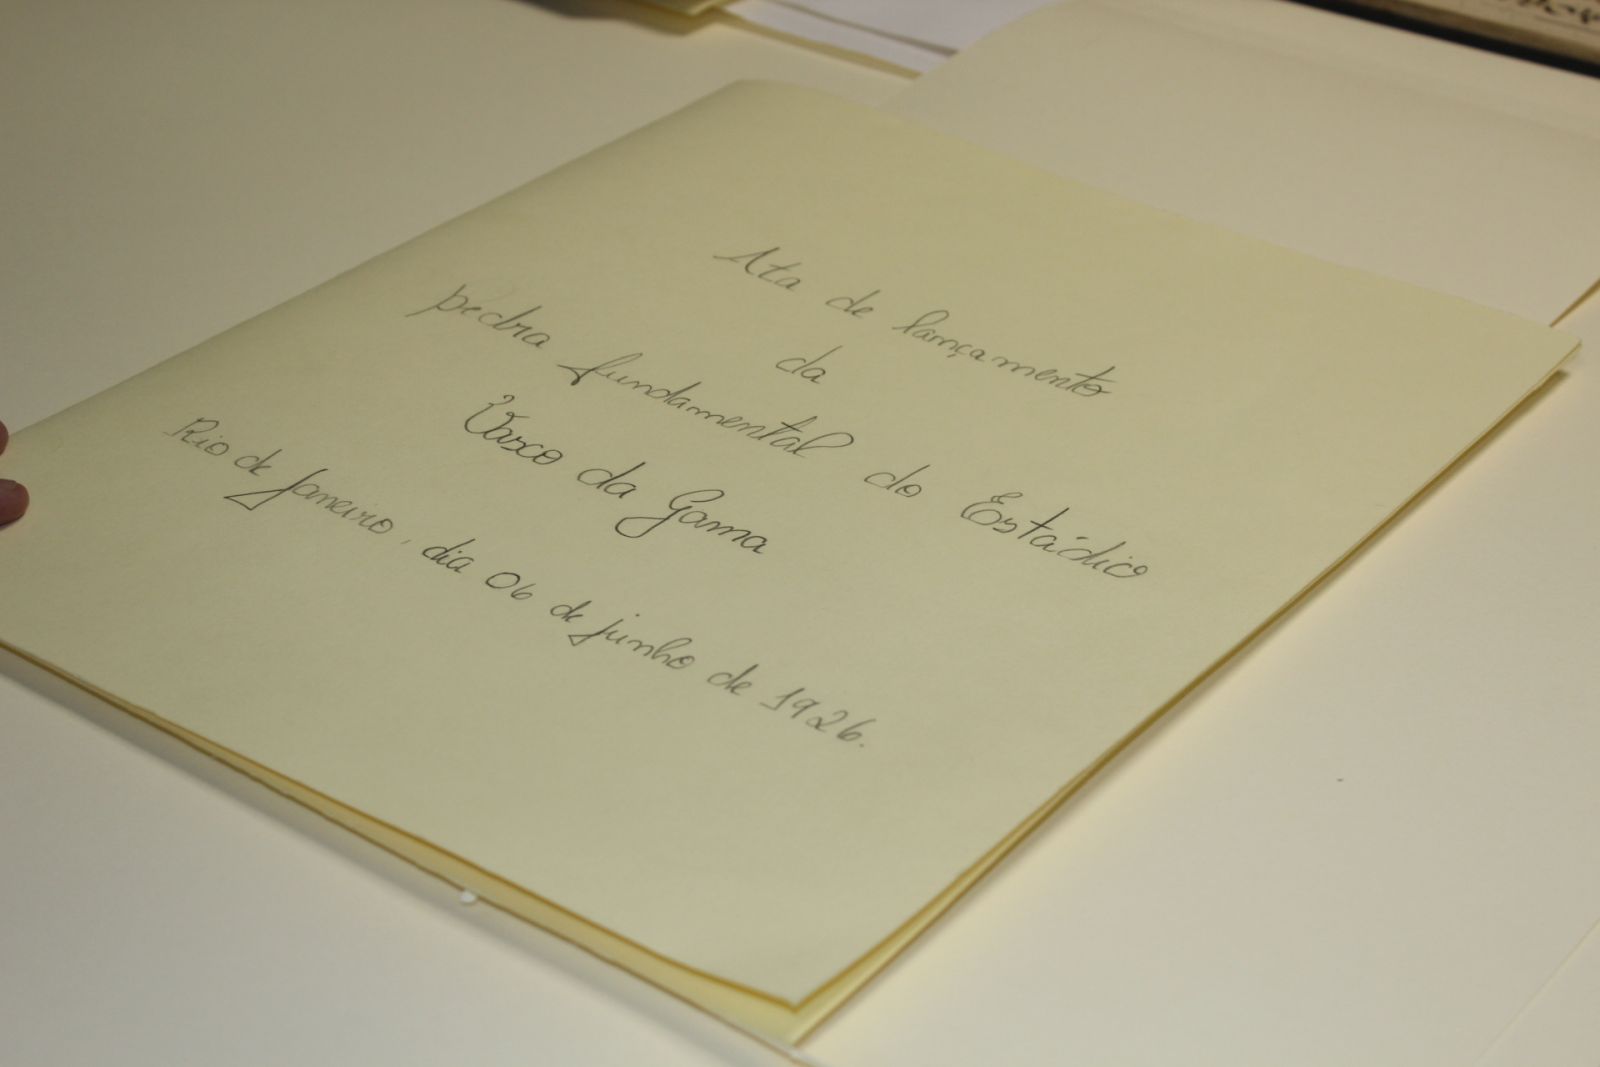 Ata de lançamento
da
pedra fundamental do Estádio
Vasco da Gama
Rio de Janeiro, dia 06 de junho de 1926.